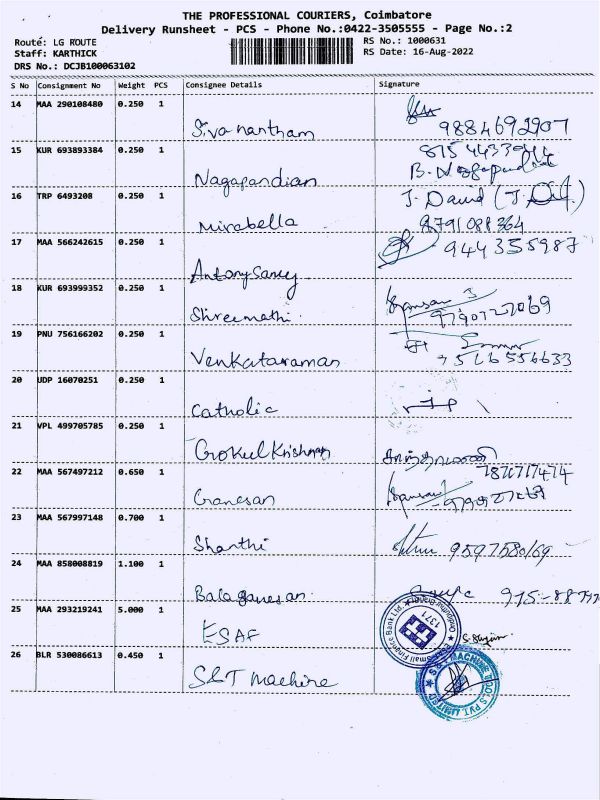 THE PROFESSIONAL COURIERS, Coimbatore
Delivery Runsheet - PCS - Phone No.:0422-3505555 - Page No.:2
Route: LG ROUTE
Staff: KARTHICK
DRS No.: DCJB100063102
RS No.: 1000631
RS Date: 16-Aug-2022
S No Consignment No Weight PCS Consignee Details Signature
14 MAA 290108480 0.250 1
Sivanantham 9884692907
15 KUR 693893384 0.250 1
Nagapandian
16 TRP 6493208 0.250 1 J. David
Mirabella 8791088364
17 MAA 566242615 0.250 1 944355987
Antonysamy
18 KUR 693999352 0.250 1
Shreemathi
19 PNU 756166202 0.250 1
Venkataraman
20 UDP 16070251 0.250 1
Catholic
21 VPL 499705785 0.250 1
Gokul Krishnan
22 MAA 567497212 0.650 1
Ganesan
23 MAA 567997148 0.700 1
Shanthi
24 MAA 858008819 1.100 1
Balaganesan
25 MAA 293219241 5.000 1
ESAF 1371
26 BLR 530086613 0.450 1
S&T Machine S&T MACHINE TOOLS PVT. LIMITED